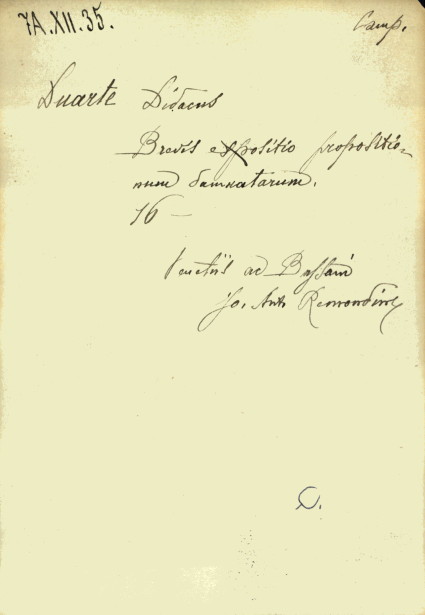 7A.XII.35.
Camp.
Duarte Didacus
Brevis expositio propositio-
num damnatarum.
16 —
Venetiis ac Bassani
Jo. Ant. Remondini